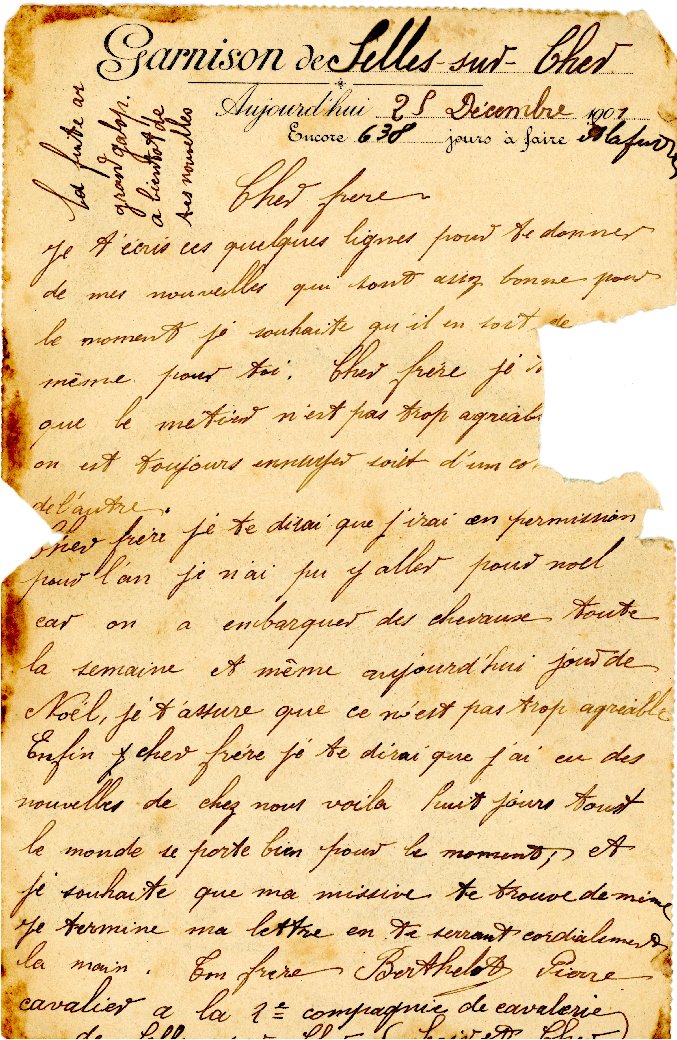 Garnison de Selles-sur-Cher
Aujourd'hui 25 Décembre 1901
Encore 638 jours à faire
La fuite au
grand galop.
a bientôt de
tes nouvelles
Cher frere
Je t'écris ces quelques lignes pour te donner
de mes nouvelles qui sont assez bonne pour
le moment je souhaite qu'il en soit de
même pour toi. Cher frére je
que le metier n'est pas trop agréab
on est toujours ennuyer soit d'un co
de l'autre.
Cher frére je te dirai que j'irai en permission
pour l'an je n'ai pu y aller pour noel
car on a embarquer des chevaux toute
la semaine et même aujourd'hui jour de
Noël, je t'assure que ce n'est pas trop agréable
Enfin cher frére je te dirai que j'ai eu des
nouvelles de chez nous voila huit jours tout
le monde se porte bien pour le moment, et
je souhaite que ma missive te trouve de même
Je termine ma lettre en te serrant cordialement
la main. Ton frére Berthelot Pierre
cavalier a la 2e compagnie de cavalerie
de Selles sur Cher (Loir et Cher)